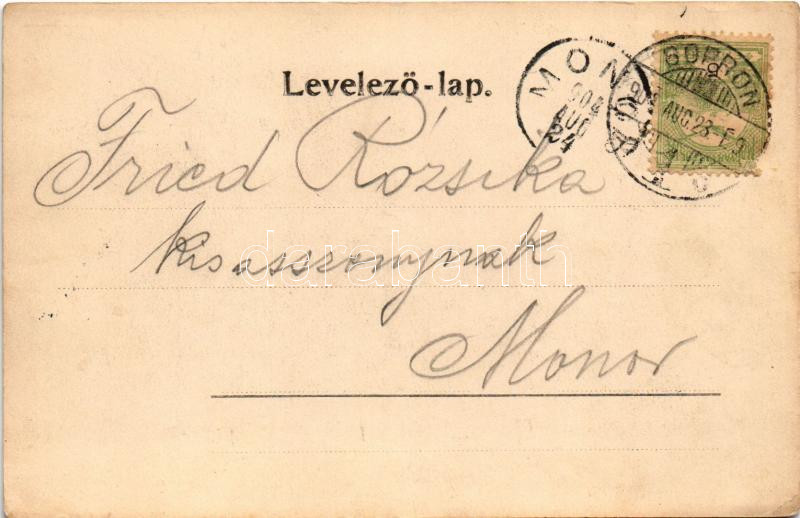 Levelező-lap.
MONOR
904
AUG
24
SOPRON
AUG. 23
Fried Rózsika
kisasszonynak
Monor
darabanth